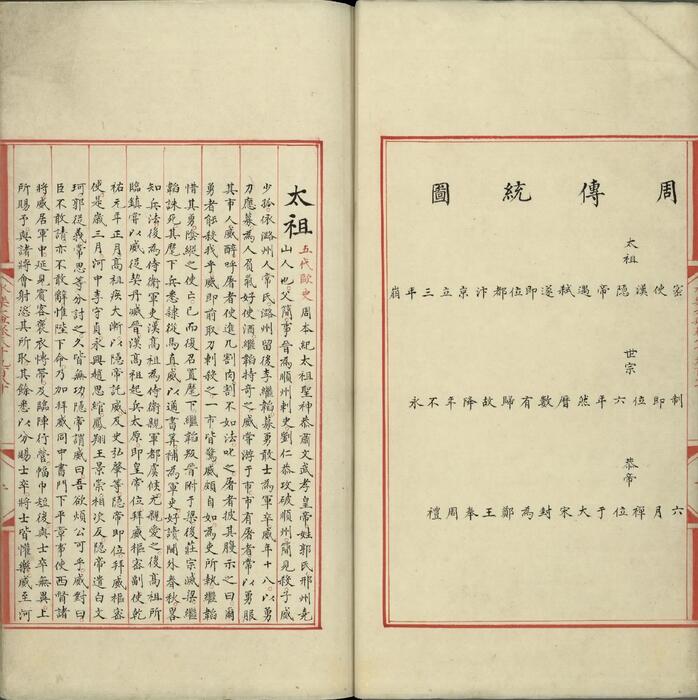 周傳統圖
太祖
密使漢隱帝遇弒遂即位都汴京立三年崩
世宗
制即位六年然曆數有歸故降年不永
恭帝
六月禪位于大宋封為鄭王奉周禮
太祖 五代歐史 周本紀太祖聖神恭肅文武孝皇帝姓郭氏邢州堯
山人也父簡事晉為順州刺史劉仁恭攻破順州簡見殺子威
少孤依潞州人常氏潞州留後李繼韜募勇敢士為軍卒威年十八以勇
力應募為人負氣好使酒繼韜特奇之威常游于市市有屠者常以勇服
其市人威醉呼屠者使進几割肉割不如法叱之屠者披其腹示之曰爾
勇者能殺我乎威即前取刀刺殺之一市皆驚威頗自如為吏所執繼韜
惜其勇陰縱之使亡已而復召置麾下繼韜叛晉附于梁後莊宗滅梁繼
韜誅死其麾下兵悉隸從馬直威以通書算補為軍吏好讀閫外春秋略
知兵法後為侍衛軍吏漢高祖為侍衛親軍都虞候尤親愛之後高祖所
臨鎮嘗以威從契丹滅晉漢高祖起兵太原即皇帝位拜威樞密副使乾
祐元年正月高祖疾大漸以隱帝託威及史弘肇等隱帝即位拜威樞密
使是歲三月河中李守貞永興趙思綰鳳翔王景崇相次反隱帝遣白文
珂郭從義常思等分討之久皆無功隱帝謂威曰吾欲煩公可乎威對曰
臣不敢請亦不敢辭惟陛下命乃加拜威同中書門下平章事使西督諸
將威居軍中延見賓客褒衣博帶及臨陣行營幅巾短後與士卒無異上
所賜予與諸將會射恣其所取其餘悉以分賜士卒將士皆懽樂威至河